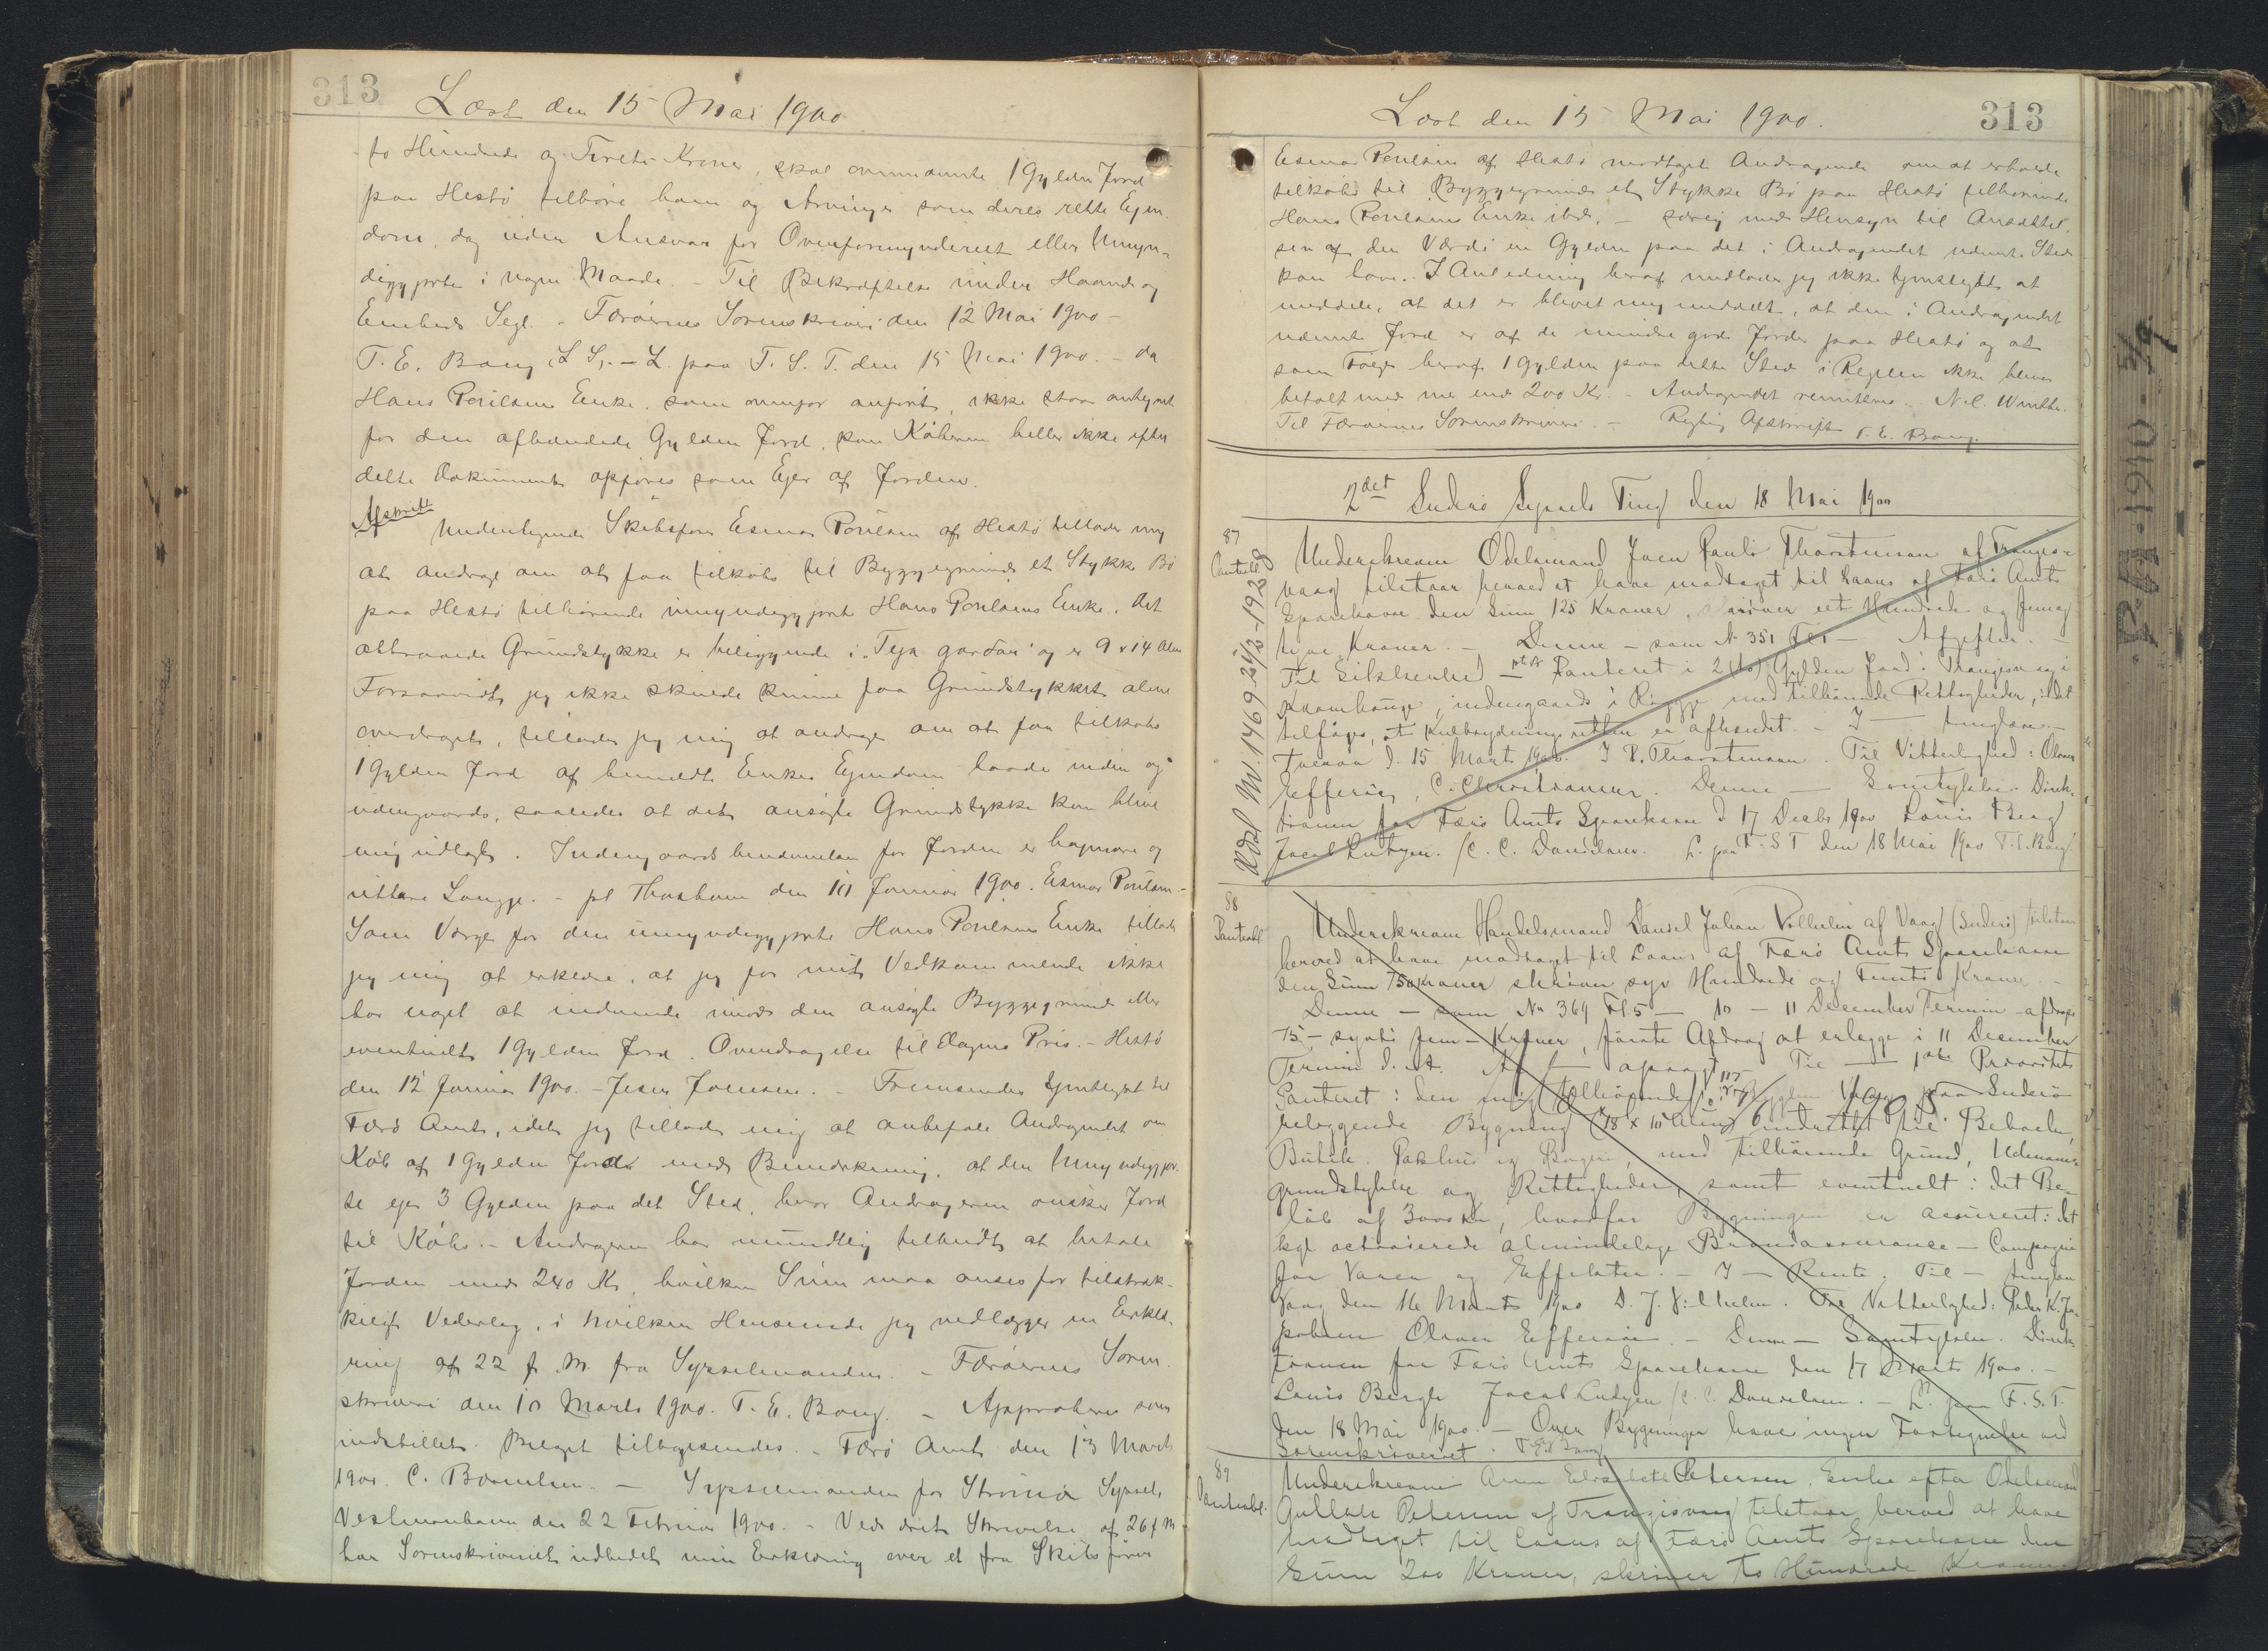 313
Læst den 15 Mai 1900
to Hundrede og Fireti Kroner, skal ovennævnte 1 Gylden Jord
paa Hestø tilhøre ham og Arvinger som deres rette Ejen-
dom, dog uden Ansvar for Overformynderiet eller Umyn-
diggjorte i nogen Maade. - Til Bekræftelse under Haand og
Embeds Segl. - Færøernes Sorenskriveri den 12 Mai 1900 -
T. E. Bang L. S. - L. paa F. S. T. den 15 Mai 1900. - da
Hans Poulsens Enke, som ovenfor anført, ikke staar antegnet
for den afhændede Gylden Jord, kan Køberen heller ikke efter
dette Dokument opføres som Ejer af Jorden.
Afskrift
Undertegnede Skibsfører Esmar Poulsen af Hestø tillader mig
at andrage om at faa tilkøbs til Byggegrund et Stykke Bø
paa Hestø tilhørende umyndiggjorte Hans Poulsens Enke. Det
attraaede Grundstykke er beliggende i og er 9 x 14 Alen
Forsaavidt jeg ikke skulde kunne faa Grundstykket alene
overdraget, tillader jeg mig at andrage om at faa tilkøbs
1 Gylden Jord af bemeldte Enkes Ejendom baade inden og
udengaards, saaledes at det ansøgte Grundstykke kan blive
mig udlagt. Indengaards benævnelsen for Jorden er og
- pt Thorshavn den 10 Januar 1900. Esmar Poulsen -
Som Værge for den umyndiggjorte Hans Poulsens Enke tillader
jeg mig at erklære, at jeg for mit Vedkommende ikke
har noget at indvende imod den ansøgte Byggegrund eller
eventuelt 1 Gylden Jord. Overdragelse til Dagens Pris. - Hestø
den 12 Januar 1900. - Joensen. - Fremsendes tjenstligst til
Færø Amt, idet jeg tillader mig at anbefale Andragendet om
Køb af 1 Gylden Jord med Bemærkning, at den Umyndiggjor-
te ejer 3 Gylden paa det Sted, hvor Andrageren ønsker Jord
til Købs. - Andrageren har mundtlig tilbudt at betale
Jorden med 240 Kr, hvilken Sum maa anses for tilstræk-
kelig Vederlag, i hvilken Henseende jeg vedlægger en Erklæ-
ring af 22 f. M. fra Sysselmanden. - Færøernes Soren-
skriveri den 10 Marts 1900. T. E. Bang. - Approberes som
indstillet. Bilaget tilbagesendes. - Færø Amt den 13 Marts
1900. C. Bærentsen. - Sysselmanden for Strømø Syssel,
Vestmanhavn den 22 Februar 1900. - Ved dets Skrivelse af 26 f M
har Sorenskriveriet udbedt min Erklæring over et fra Skibsfører
Læst den 15 Mai 1900.
313
Esmar Poulsen af Hestø modtaget Andragende om at erholde
tilkøbs til Byggegrund et Stykke Bø paa Hestø tilhørende
Hans Poulsens Enke ibd. - særlig med Hensyn til Ansættel-
sen af den Værdi en Gylden paa det i Andragendet nævnte Sted
kan have. - I Anledning heraf undlader jeg ikke tjenstligst at
meddele, at det er blevet mig meddelt, at den i Andragendet
nævnte Jord er af de mindre gode Jorder paa Hestø og at
som Følge heraf 1 Gylden paa dette Sted i Reglen ikke bliver
betalt med mere end 200 Kr. - Andragendet remitteres. N. C. Winther.
Til Færøernes Sorenskriveri. - Rigtig Afskrift T. E. Bang.
2det Suderø Syssels Ting den 18 Mai 1900
87
Panteobl
Underskrevne Odelsmand Joen Pauli Thorsteinson af Trangis-
vaag tilstaar herved at have modtaget til Laans af Færø Amts
Sparekasse den Sum 125 Kroner, skriver eet Hundrede og fem og
tyve Kroner. - Denne - som No 351 Fl 1 - Afgiften. -
Til Sikkerhed - Panteret i 2 (to) Gylden Jord i Trangisvaag i
indengaards i med tilhørende Rettigheder, idet
tilføjes, at Kulbrydningsretten er afhændet. - I - tinglæse -
Tveraa d. 15 Marts 1900. J P. Thorsteinson. Til Vitterlighed: Oliver
Effersøe, C. Christiansen. Denne - Samtykke. Direk-
tionen for Færø Amts Sparekasse d 17 1900 Louis Bergh
Jacob Lützen. / C. C. Danielsen. L. paa F. S T den 18 Mai 1900 T. E. Bang
Udsl No. 1469 24/3-1928
88
Panteobl.
Underskrevne Handelsmand Daniel Johan Vilhelm af Vaag (Suderø) tilstaar
herved at have modtaget til Laans af Færø Amts Sparekasse
den Sum 750 Kroner skriver syv Hundrede og Femti Kroner -
Denne - som No 364 Fl. 5 - 10 - 11 December Termin - afdrage
75 - syvti fem - Kroner, første Afdrag at erlægge i 11 December
Termin d. A. - opsagt. Til - 1ste Prioritets
Panteret i den mig tilhørende i Vaag paa Suderø
beliggende Bygning (18 x 10 Alen) indrettet til Beboelse,
Butik, Pakhus og Bageri, med tilhørende Grund, Udmarks-
grundstykke og Rettigheder, samt eventuelt i det Be-
løb af 3000 Kr, hvorfor Bygningen er assureret i det
kgl. octroierede almindelige Brandassurance - Compagni
for Varer og Effekter. - I - Rente. Til - tinglæse
Vaag den 16 Marts 1900 D. J. Vilhelm. Til Vitterlighed: Peder K. Ja-
kobsen Oliver Effersøe. - Denne - Samtykke. Direk-
tionen for Færø Amts Sparekasse den 17 Marts 1900. -
Louis Bergh Jacob Lützen / C C Danielsen. - L. paa F. S. T.
den 18 Mai 1900. - Over Bygninger haves ingen Fortegnelse ved
Sorenskriveriet. T. E. Bang
89
Panteobl.
Underskrevne Anna Elisabeth Petersen, Enke efter Odelsmand
Petersen af Trangisvaag tilstaar herved at have
modtaget til Laans af Færø Amts Sparekasse den
Sum 200 Kroner, skriver to Hundrede Kroner